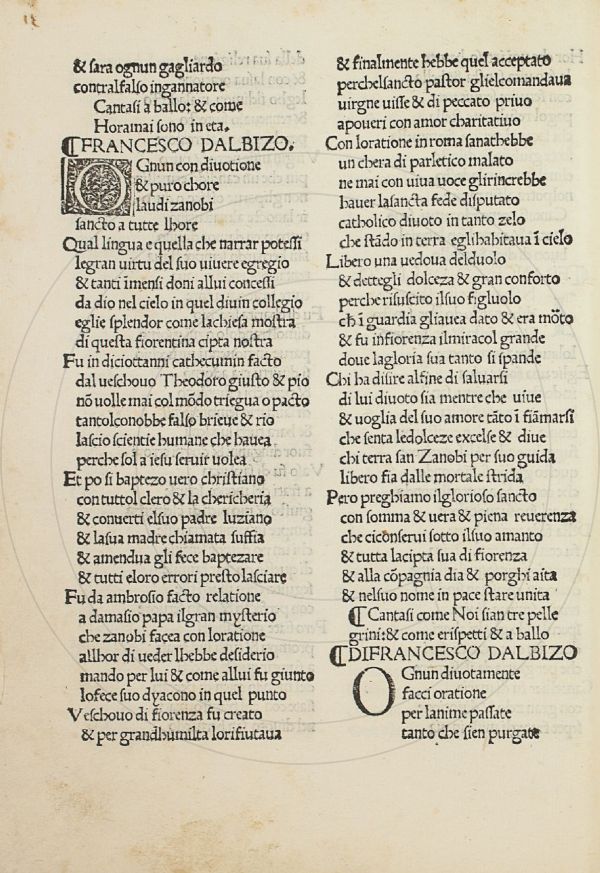 & sara ognun gagliardo
contralfalso ingannatore
Cantasi a ballo: & come
Horamai sono in eta.
⁋FRANCESCO DALBIZO.
OGnun con diuotione
& puro chore
laudi zanobi
sancto a tutte lhore
Qual lingua e quella che narrar potessi
legran uirtu del suo uiuere egregio
& tanti īmensi doni allui concessi
da dio nel cielo in quel diuin collegio
eglie splendor come lachiesa mostra
di questa fiorentina cipta nostra
Fu in diciottanni cathecumin facto
dal ueschouo Theodoro giusto & pio
nō uolle mai col mōdo triegua o pacto
tantolconobbe falso brieue & rio
lascio scientie humane che hauea
perche sol a iesu seruir uolea
Et po si baptezo uero christiano
con tuttol clero & la chericheria
& conuerti elsuo padre luziano
& lasua madre chiamata suffia
& amendua gli fece baptezare
& tutti eloro errori presto lasciare
Fu da ambrosio facto relatione
a damasio papa ilgran mysterio
che zanobi facea con loratione
allhor di ueder lhebbe desiderio
mando per lui & come allui fu giunto
lofece suo dyacono in quel punto
Veschouo di fiorenza fu creato
& per grandhumilta lorifiutaua
& finalmente hebbe quel acceptato
perchelsancto pastor glielcomandaua
uirgne uisse & di peccato priuo
apoueri con amor charitatiuo
Con loratione in roma sanathebbe
un chera di parletico malato
ne mai con uiua uoce glirincrebbe
hauer lasancta fede disputato
catholico diuoto in tanto zelo
che stādo in terra eglihabitaua ī cielo
Libero una uedoua delduolo
& dettegli dolceza & gran conforto
perche risuscito ilsuo figluolo
ch̄ ī guardia gliauea dato & era mōto
& fu infiorenza ilmiracol grande
doue lagloria sua tanto si spande
Chi ha disire alfine di saluarsi
di lui diuoto sia mentre che uiue
& uoglia del suo amore tāto ī fiāmarsi
che senta ledolceze excelse & diue
chi terra san Zanobi per suo guida
libero fia dalle mortale strida
Pero preghiamo ilglorioso sancto
con somma & uera & piena reuerenza
che ciconserui sotto ilsuo amanto
& tutta lacipta sua di fiorenza
& alla cōpagnia dia & porghi aita
& nelsuo nome in pace stare unita
⁋Cantasi come Noi sian tre pelle
grini: & come erispetti & a ballo
⁋DIFRANCESCO DALBIZO
OGnun diuotamente
facci oratione
per lanime passate
tanto che sien purgate